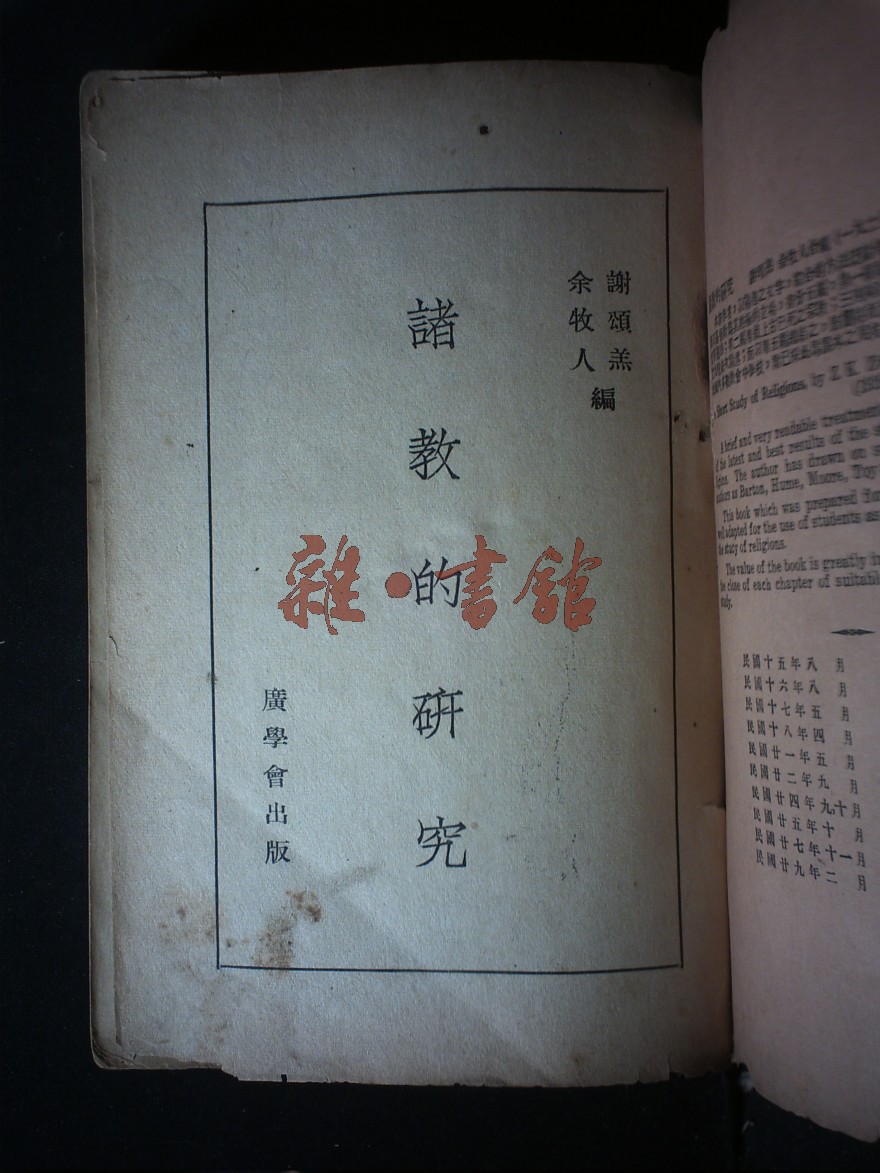 謝頌羔
余牧人
編
諸教的研究
廣學會出版
雜·書館
Short Study of Religions, by Z. K.
A brief and very readable treatment
of the latest and best results of the
The author has drawn on
as Barton, Hume, Moore, Toy
This book which was prepared for
well adapted for the use of students as
the study of religions.
The value of the book is greatly
the close of each chapter of suitable
study.
民國十五年八月
民國十六年八月
民國十七年五月
民國十八年四月
民國廿一年五月
民國廿二年九月
民國廿四年九十月
民國廿五年十月
民國廿七年十一月
民國廿九年二月